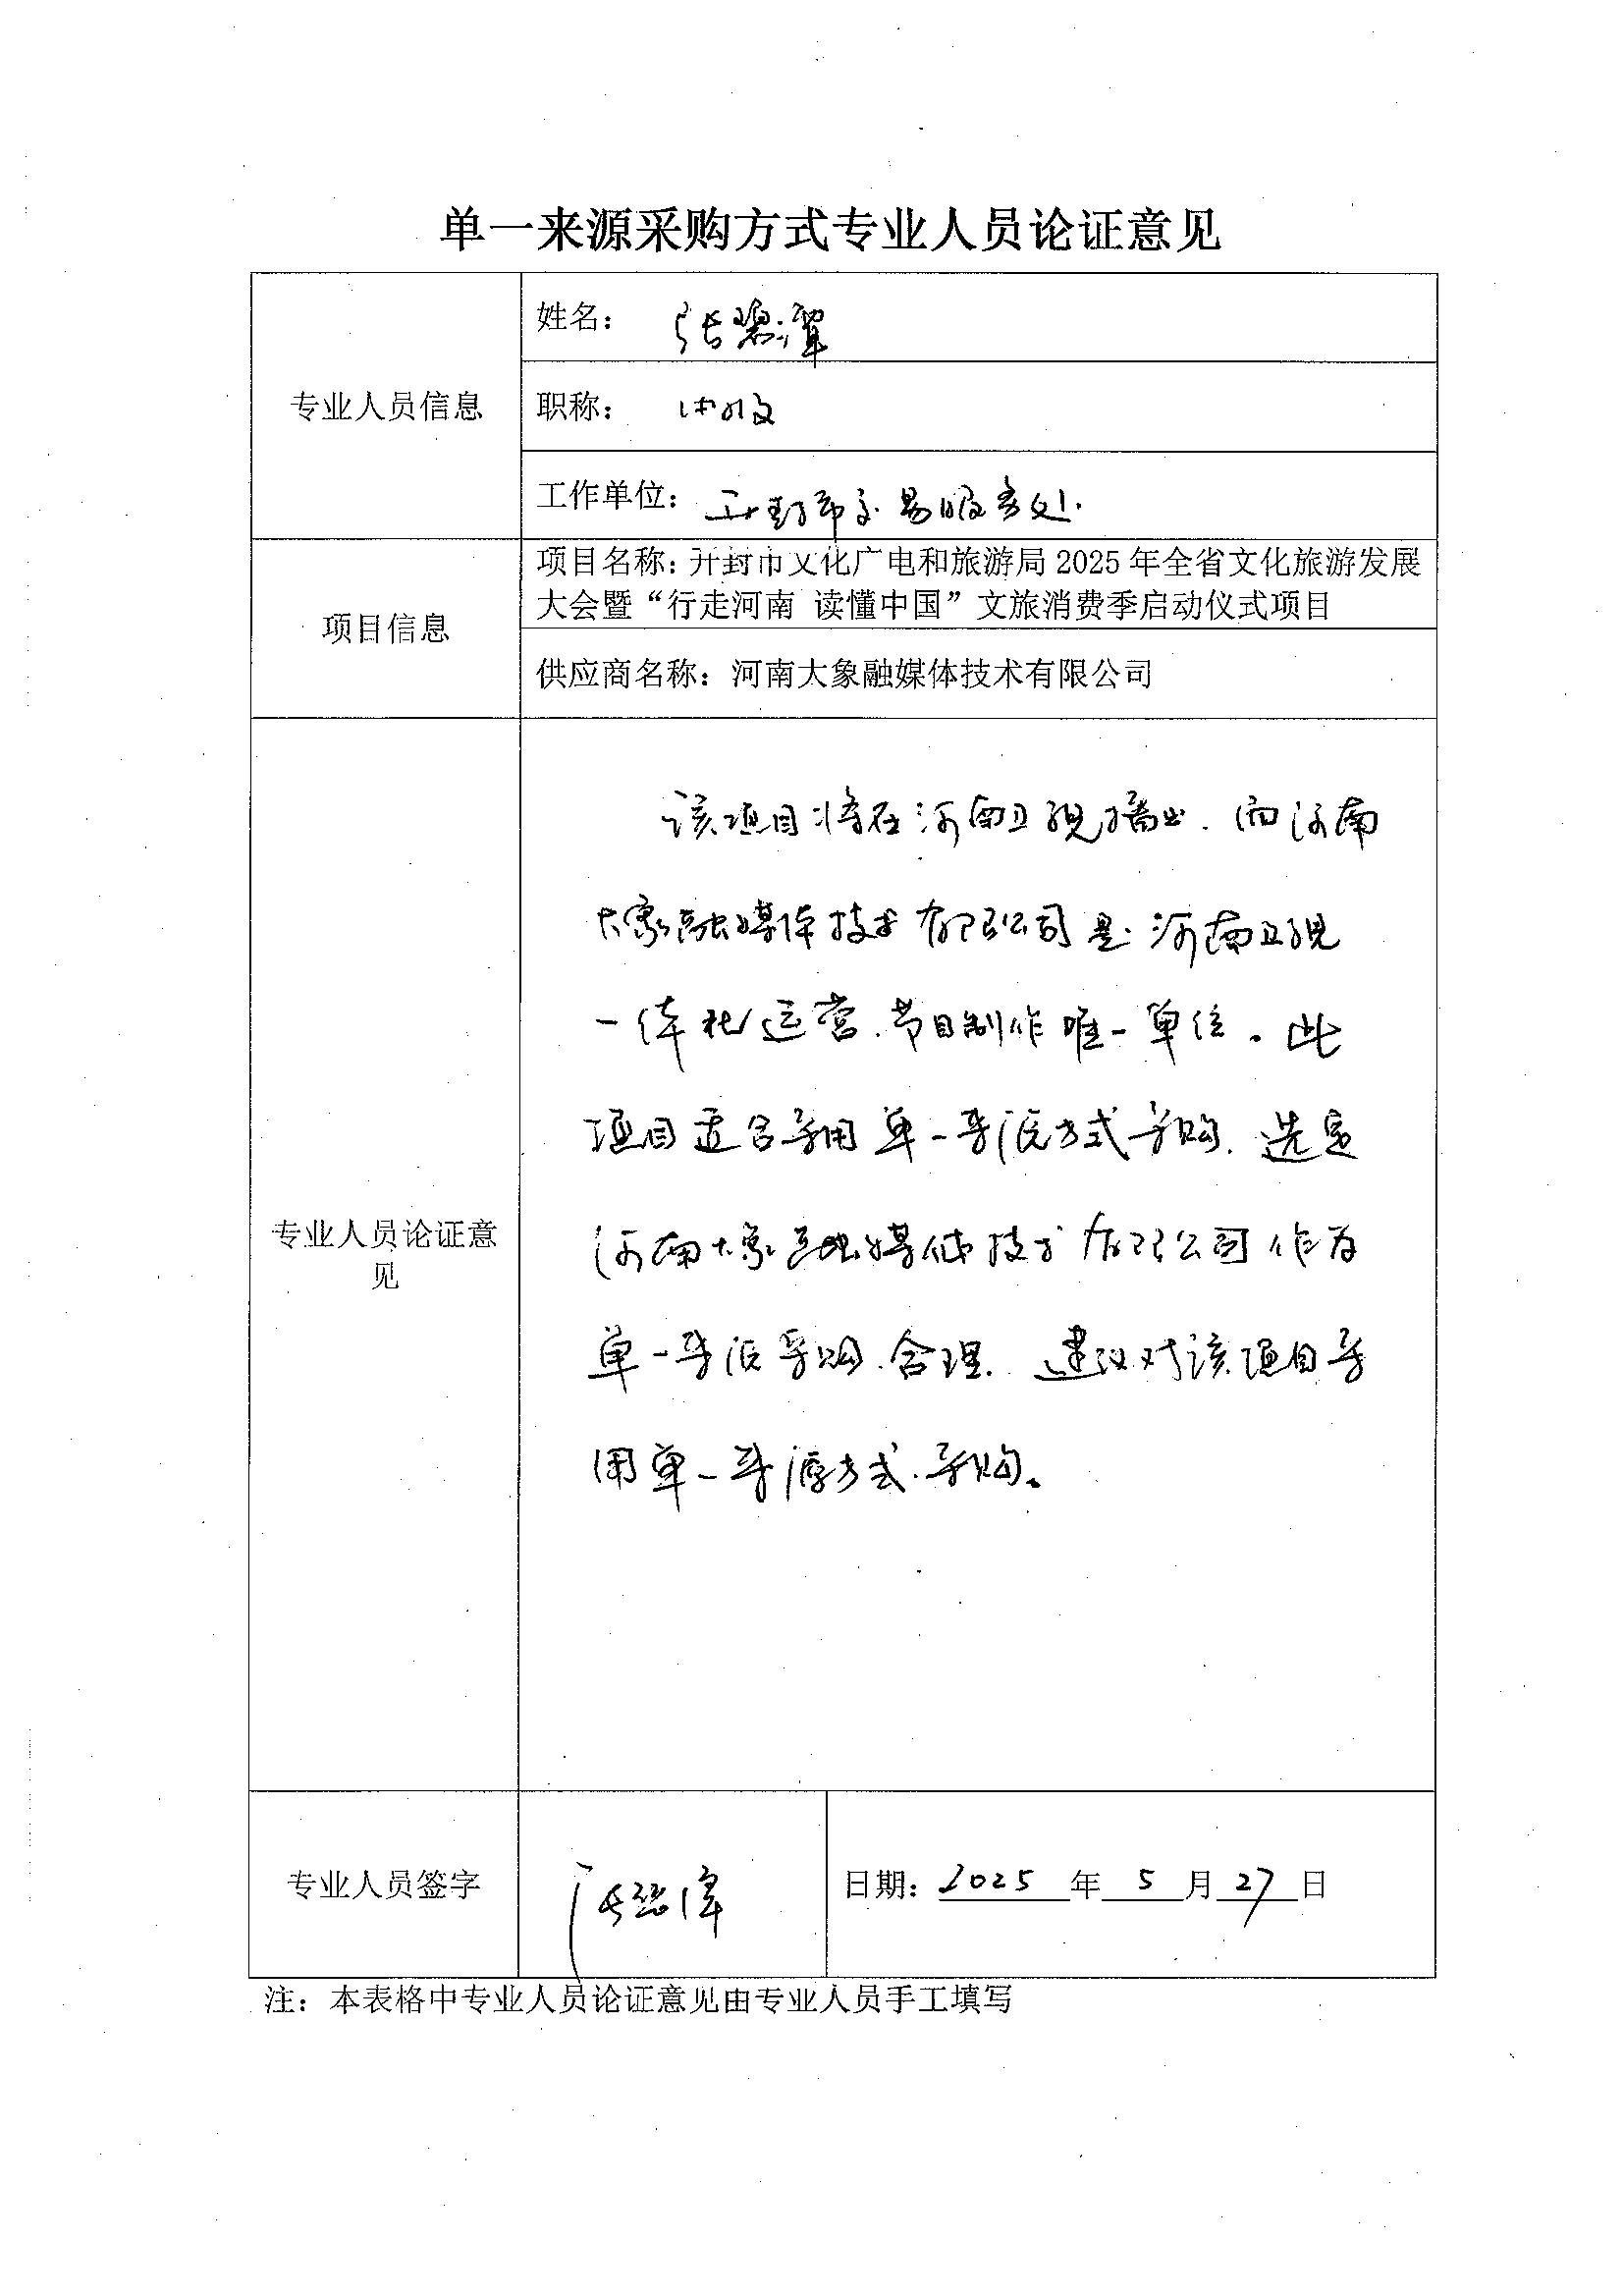 单一来源采购方式专业人员论证意见
专业人员信息
姓名： 张
职称：
工作单位： 开封市交易服务处.
项目信息
项目名称：开封市文化广电和旅游局 2025 年全省文化旅游发展
大会暨“行走河南 读懂中国”文旅消费季启动仪式项目
供应商名称：河南大象融媒体技术有限公司
专业人员论证意
见
该项目将在河南卫视播出. 而河南
大象融媒体技术有限公司是河南卫视
一体化运营.节目制作唯一单位。此
项目适合采用单一来源方式采购. 选定
河南大象融媒体技术有限公司作为
单一来源采购.合理. 建议对该项目采
用单一来源方式.采购。
专业人员签字
张
日期：2025 年 5 月 27 日
注：本表格中专业人员论证意见由专业人员手工填写